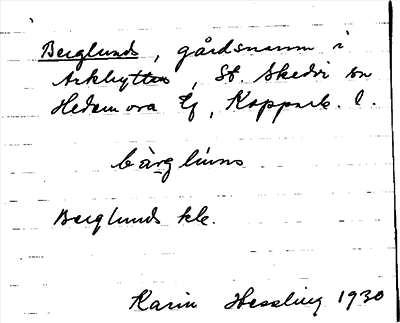 Berglunds, gårdsnamn i
Arkhyttan, St. Skedvi sn
Hedemora Tg, Kopparb. l.
bàrg lúns
Berglunds kle.
Karin Hessling 1930